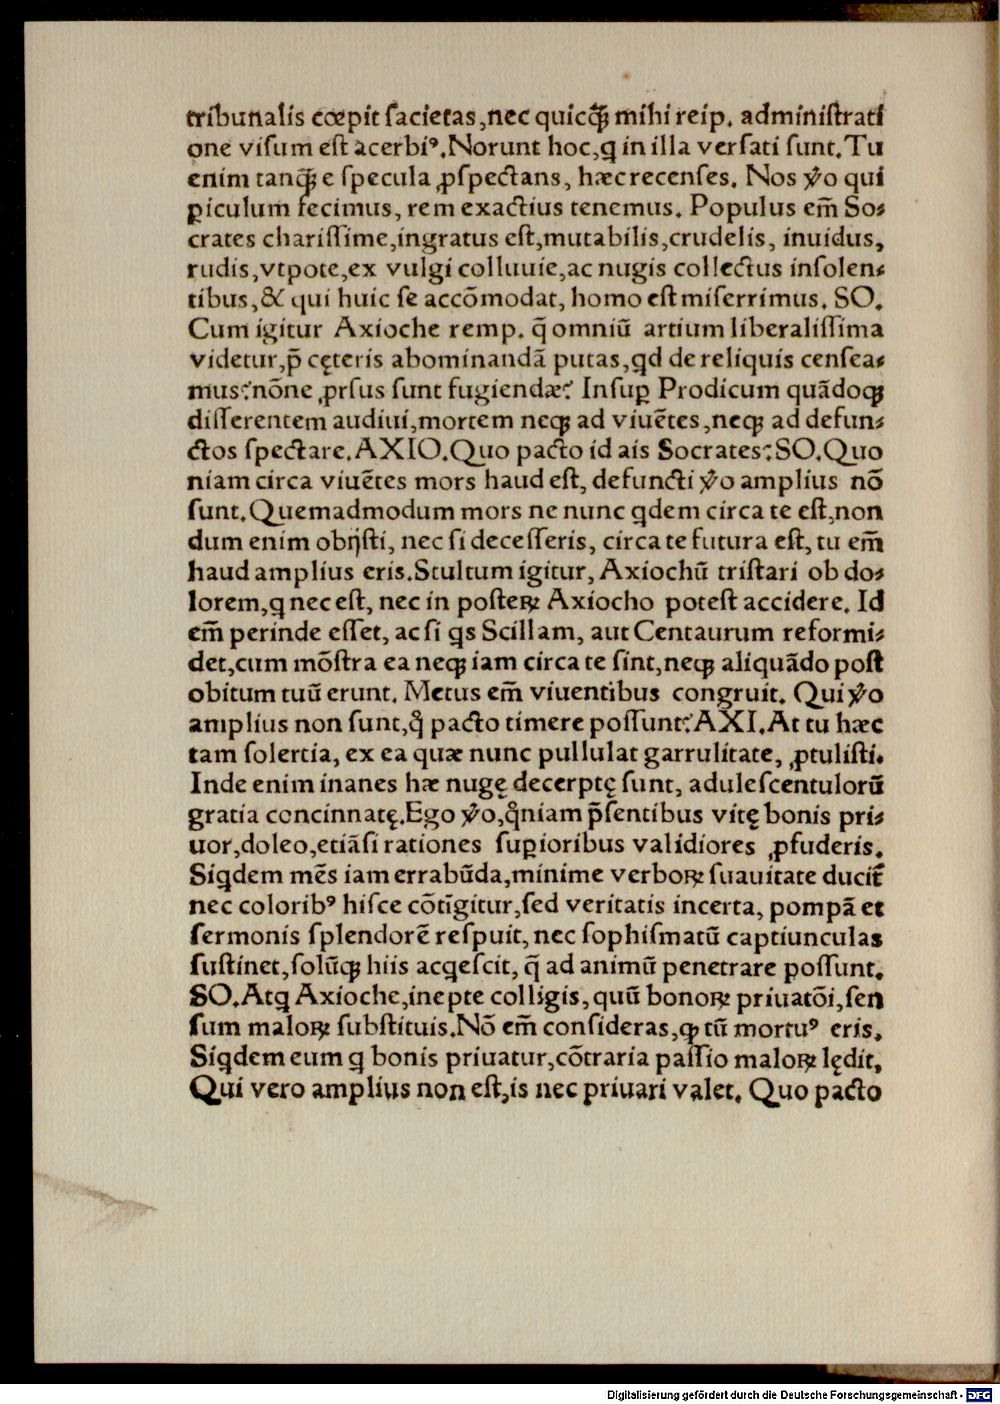 tribunalis cœpit ſacietas,nec quicꝙ̃ mihi reip. adminiſtrati
one viſum eſt acerbiꝰ.Norunt hoc,q in illa verſati ſunt.Tu
enim tanꝙ̃ e ſpecula ꝓſpectans, hæc recenſes. Nos ꝟo qui
ꝑiculum fecimus, rem exactius tenemus. Populus em̃ So⸗
crates chariſſime,ingratus eſt,mutabilis,crudelis, inuidus,
rudis,vtpote,ex vulgi colluuie,ac nugis collectus inſolen⸗
tibus,& qui huic ſe accõmodat, homo eſt miſerrimus. SO.
Cum igitur Axioche remp. q̃ omniũ artium liberaliſſima
videtur,p̄ cęteris abominandã putas,qd de reliquis cenſea⸗
mus?nõne ꝓrſus ſunt fugiendæ? Inſuꝑ Prodicum quãdoꝙ
diſſerentem audiui,mortem neꝙ ad viuẽtes,neꝙ ad defun⸗
ctos ſpectare.AXIO.Quo pacto id ais Socrates?SO.Quo
niam circa viuẽtes mors haud eſt, defuncti ꝟo amplius nõ
ſunt.Quemadmodum mors ne nunc qdem circa te eſt,non
dum enim obijſti, nec ſi deceſſeris, circa te futura eſt, tu em̃
haud amplius eris.Stultum igitur, Axiochũ triſtari ob do⸗
lorem,q nec eſt, nec in poſteꝝ Axiocho poteſt accidere. Id
em̃ perinde eſſet, ac ſi qs Scillam, aut Centaurum reformi⸗
det,cum mõſtra ea neꝙ iam circa te ſint,neꝙ aliquãdo poſt
obitum tuũ erunt. Metus em̃ viuentibus congruit. Qui ꝟo
amplius non ſunt,qͦ pacto timere poſſunt?AXI.At tu hæc
tam ſolertia, ex ea quæ nunc pullulat garrulitate, ꝓtuliſti.
Inde enim inanes hæ nugę decerptę ſunt, aduleſcentulorũ
gratia concinnatę.Ego ꝟo,qͦniam p̄ſentibus vitę bonis pri⸗
uor,doleo,etiãſi rationes ſuꝑioribus validiores ꝓfuderis.
Siqdem mẽs iam errabũda,minime verboꝝ ſuauitate ducit̃
nec coloribꝰ hiſce cõtĩgitur,ſed veritatis incerta, pompã et
ſermonis ſplendorẽ reſpuit, nec ſophiſmatũ captiunculas
ſuſtinet,ſolũꝙ hiis acqeſcit, q̃ ad animũ penetrare poſſunt.
SO.Atq Axioche,inepte colligis,quũ bonoꝝ priuatõi,ſen
ſum maloꝝ ſubſtituis.Nõ em̃ conſideras,ꝙ tũ mortuꝰ eris.
Siqdem eum q bonis priuatur,cõtraria paſſio maloꝝ lędit,
Qui vero amplius non eſt,is nec priuari valet. Quo pacto
Digitalisierung gefördert durch die Deutsche Forschungsgemeinschaft - DFG